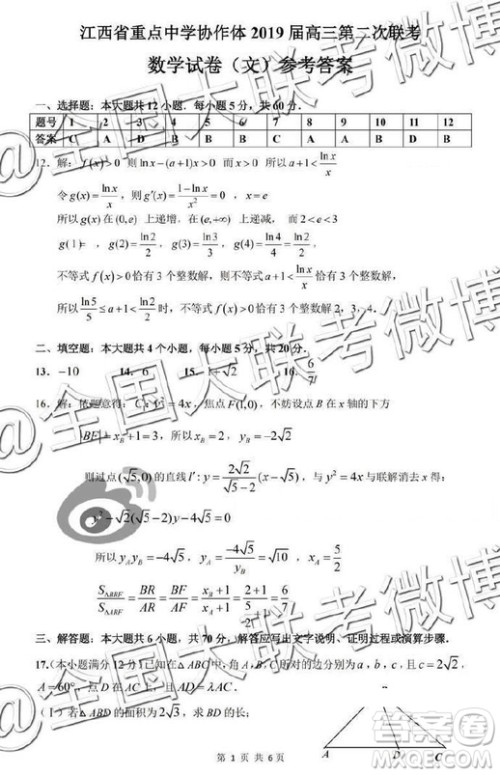 江西省重点中学协作体 2019 届高三第二次联考
数学试卷（文）参考答案
一、选择题：本大题共 12 小题，每小题 5 分，共 60 分．
题号 1 2 3 4 5 6 7 8 9 10 11 12
答案 C A D B B B C A A B D B
12．解：f(x)>0 则 lnx-(a+1)x>0 而 x>0 所以 a+1<lnx/x
令 g(x)=lnx/x，则 g'(x)=(1-lnx)/x²=0，x=e
所以 g(x) 在 (0,e) 上递增，在 (e,+∞) 上递减，而 2<e<3
g(1)= ，g(2)=ln2/2，g(3)=ln3/3，g(4)=ln4/4=ln2/2
不等式 f(x)>0 恰有 3 个整数解，则不等式 a+1<lnx/x 恰有 3 个整数解，
所以 ln5/5≤a+1<ln2/2 时，不等式有 3 个整数解 2，3，4．
二、填空题：本大题共 4 个小题，每小题 5 分，共 20 分．
13．-10 14．6 15． 16．6/7
16．解：依题意得：C:y²=4x，焦点 F(1,0)，不妨设点 B 在 x 轴的下方
|BF|=x_B+1=3，所以 x_B=2，y_B=-2√2
则过点 (√5,0) 的直线 l':y=2√2/(√5-2)(x-√5)，与 y²=4x 与联解消去 x 得：
y²-√2(√5-2)y-4√5=0
所以 y_A y_B=-4√5，y_A=-4√5/y_B=√10，x_A=5/2
S△BRF/S△ARF=BR/AR=BF/AF=(x_B+1)/(x_A+1)=(2+1)/(5/2+1)=6/7
三、解答题：本大题共 6 小题，共 70 分，解答应写出文字说明、证明过程或演算步骤．
17．（本小题满分 12 分）已知在△ABC 中，角 A，B，C 所对的边分别为 a，b，c，且 c=2√2，
A=60°，点 D 在 AC 上且 AD=λAC．
（1）若△ABD 的面积为 2√3，求 BD 的长；
A D C
第 1 页 共 6 页
@全国大联考微博
@全国大联考微博
@全国大联考微博
答案圈